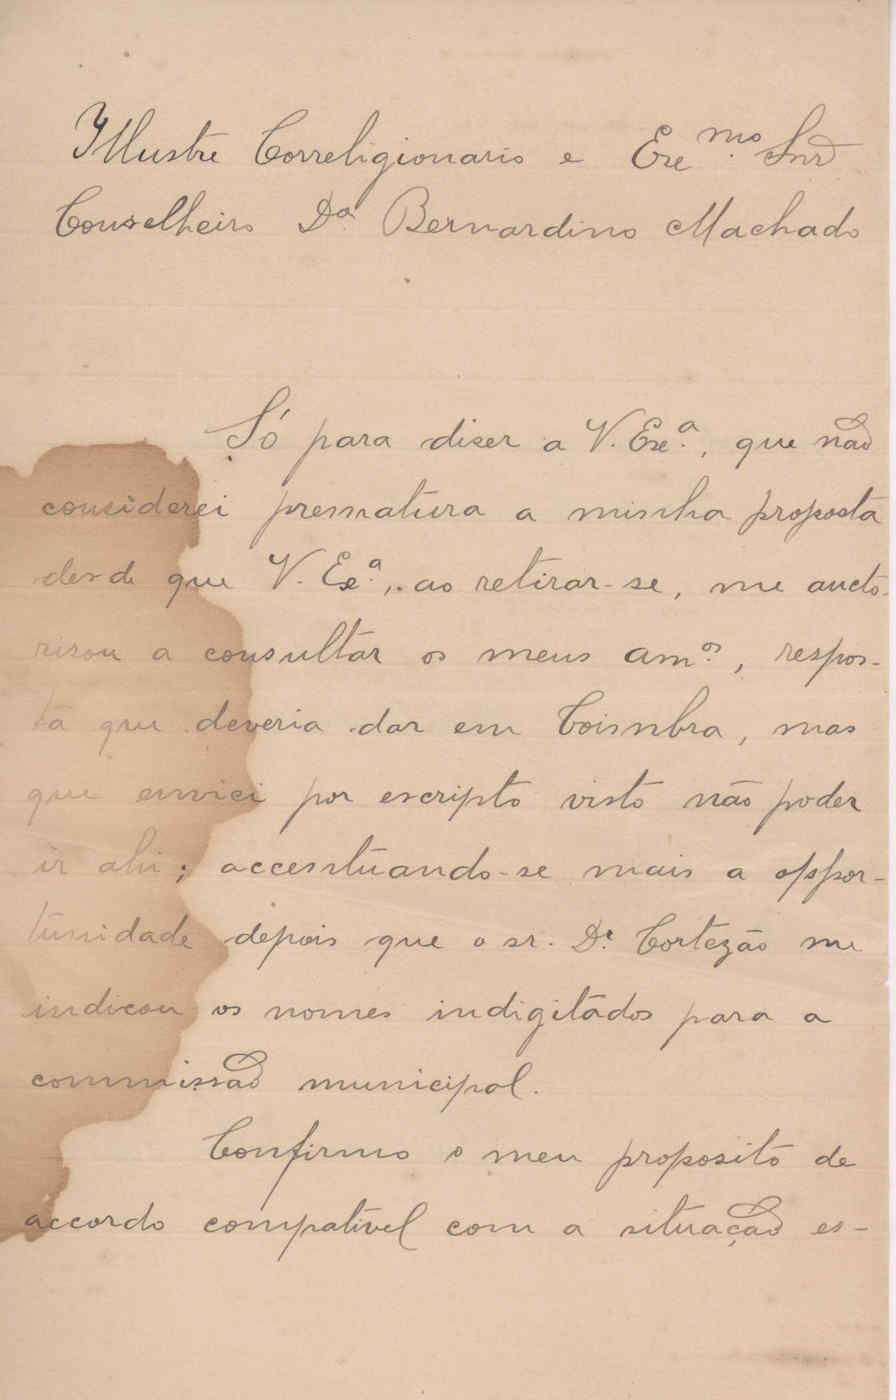 Illustre Correligionario e Exe.mo Snr
Conselheiro Dor. Bernardino Machado
Só para diser a V. Exe.ª, que não
considerei prematura a minha proposta
desde que V. Exe.ª, ao retirar-se, me aucto-
risou a consultar os meus am.os, respos-
ta que deveria dar em Coimbra, mas
que enviei por escripto visto não poder
ir ahi; accentuando-se mais a oppor-
tunidade depois que o sr. Dr. Cortezão me
indicou os nomes indigitados para a
commissão municipal.
Confirmo o meu proposito de
accordo compativel com a situação es-